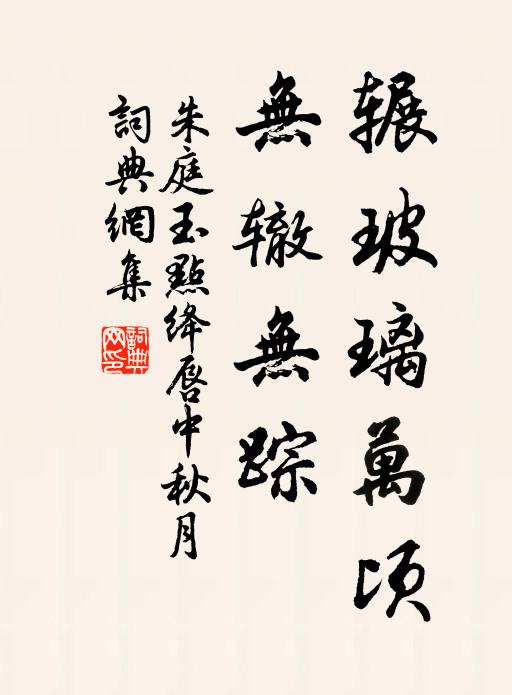 辗玻璃萬顷
無辙無踪
朱庭玉點绛唇中秋月
詞典網集
詞典網印